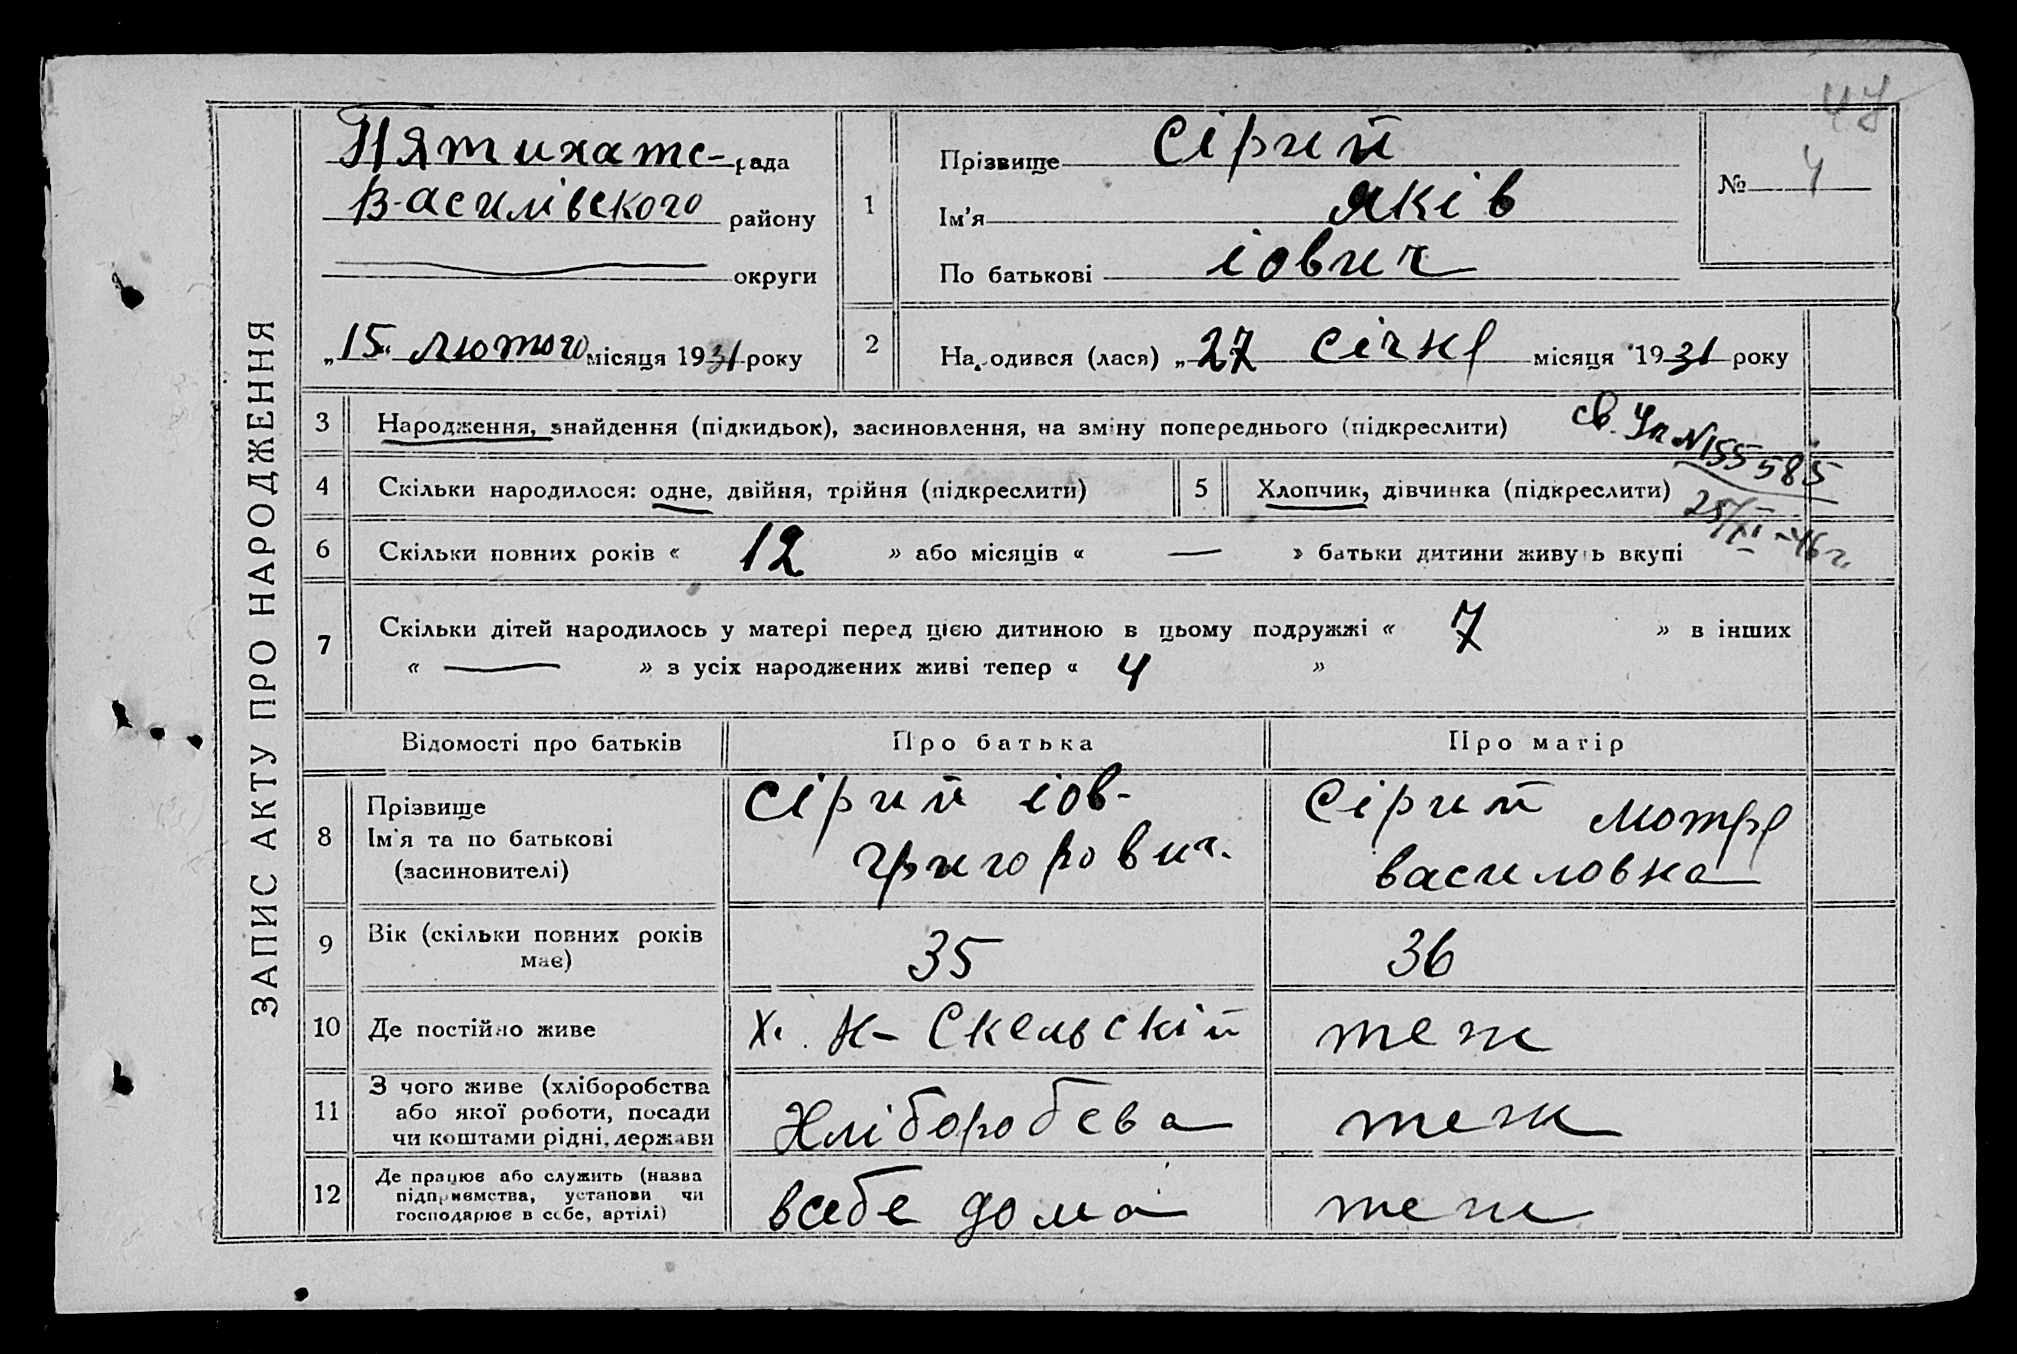 47
ЗАПИС АКТУ ПРО НАРОДЖЕННЯ
Пятихатс- рада
Василівского району
округи
„15" лютого місяця 1931 року
1
Прізвище Сірий
Ім'я Яків
По батькові іович
№ 4
2
Народився (лася) „27 Січня місяця 1931 року
3 Народження, знайдення (підкидьок), засиновлення, на зміну попереднього (підкреслити)
св. Уп N155585
25/XI-46 г.
4 Скільки народилося: одне, двійня, трійня (підкреслити)
5 Хлопчик, дівчинка (підкреслити)
6 Скільки повних років « 12 » або місяців « — » батьки дитини живуть вкупі
7 Скільки дітей народилось у матері перед цією дитиною в цьому подружжі « 7 » в інших
« — » з усіх народжених живі тепер « 4 »
Відомості про батьків Про батька Про матір
8 Прізвище
Ім'я та по батькові
(засиновителі)
Сірий іов-
григорович.
Сірий мотря
василовна
9 Вік (скільки повних років
має)
35
36
10 Де постійно живе
Х. Н-Скельскій
теж
11 З чого живе (хліборобства
або якої роботи, посади
чи коштами рідні, держави
Хліборобсва
теж
12 Де працює або служить (назва
підприємства, установи чи
господарює в себе, артілі)
всебе дома
теж